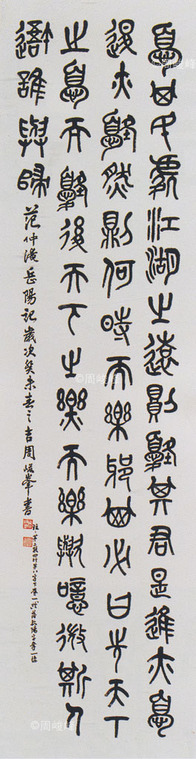 憂其民處江湖之遠則憂其君是進亦憂
退亦憂然則何時而樂耶其必曰先天下
之憂而憂後天下之樂而樂歟噫微斯人
吾誰與歸
范仲淹岳陽記歲次癸未春之吉周峻峯書